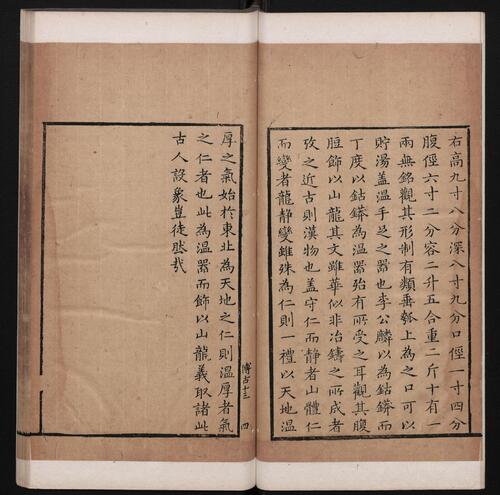 右高九寸八分深八寸九分口徑一寸四分
腹徑六寸二分容二升五合重二斤十有一
兩無銘觀其形制有類垂瓠上為之口可以
貯湯盖溫手足之器也李公麟以為鈷䥈而
丁度以鈷䥈為溫器殆有所受之耳觀其腹
脰飾以山龍其文雖華似非冶鑄之所成者
攷之近古則漢物也盖守仁而靜者山體仁
而變者龍靜變雖殊為仁則一禮以天地溫
厚之氣始於東北為天地之仁則溫厚者氣
之仁者也此為溫器而飾以山龍義取諸此
古人設象豈徒然哉
博古十三
四